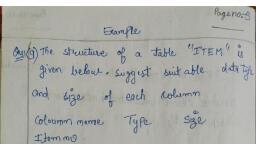 Page no:-5
Example
Que (9) The structure of a table "ITEM" is
given below. suggest suitable data type
and size of each column
Coloumn name Type Size
Item no